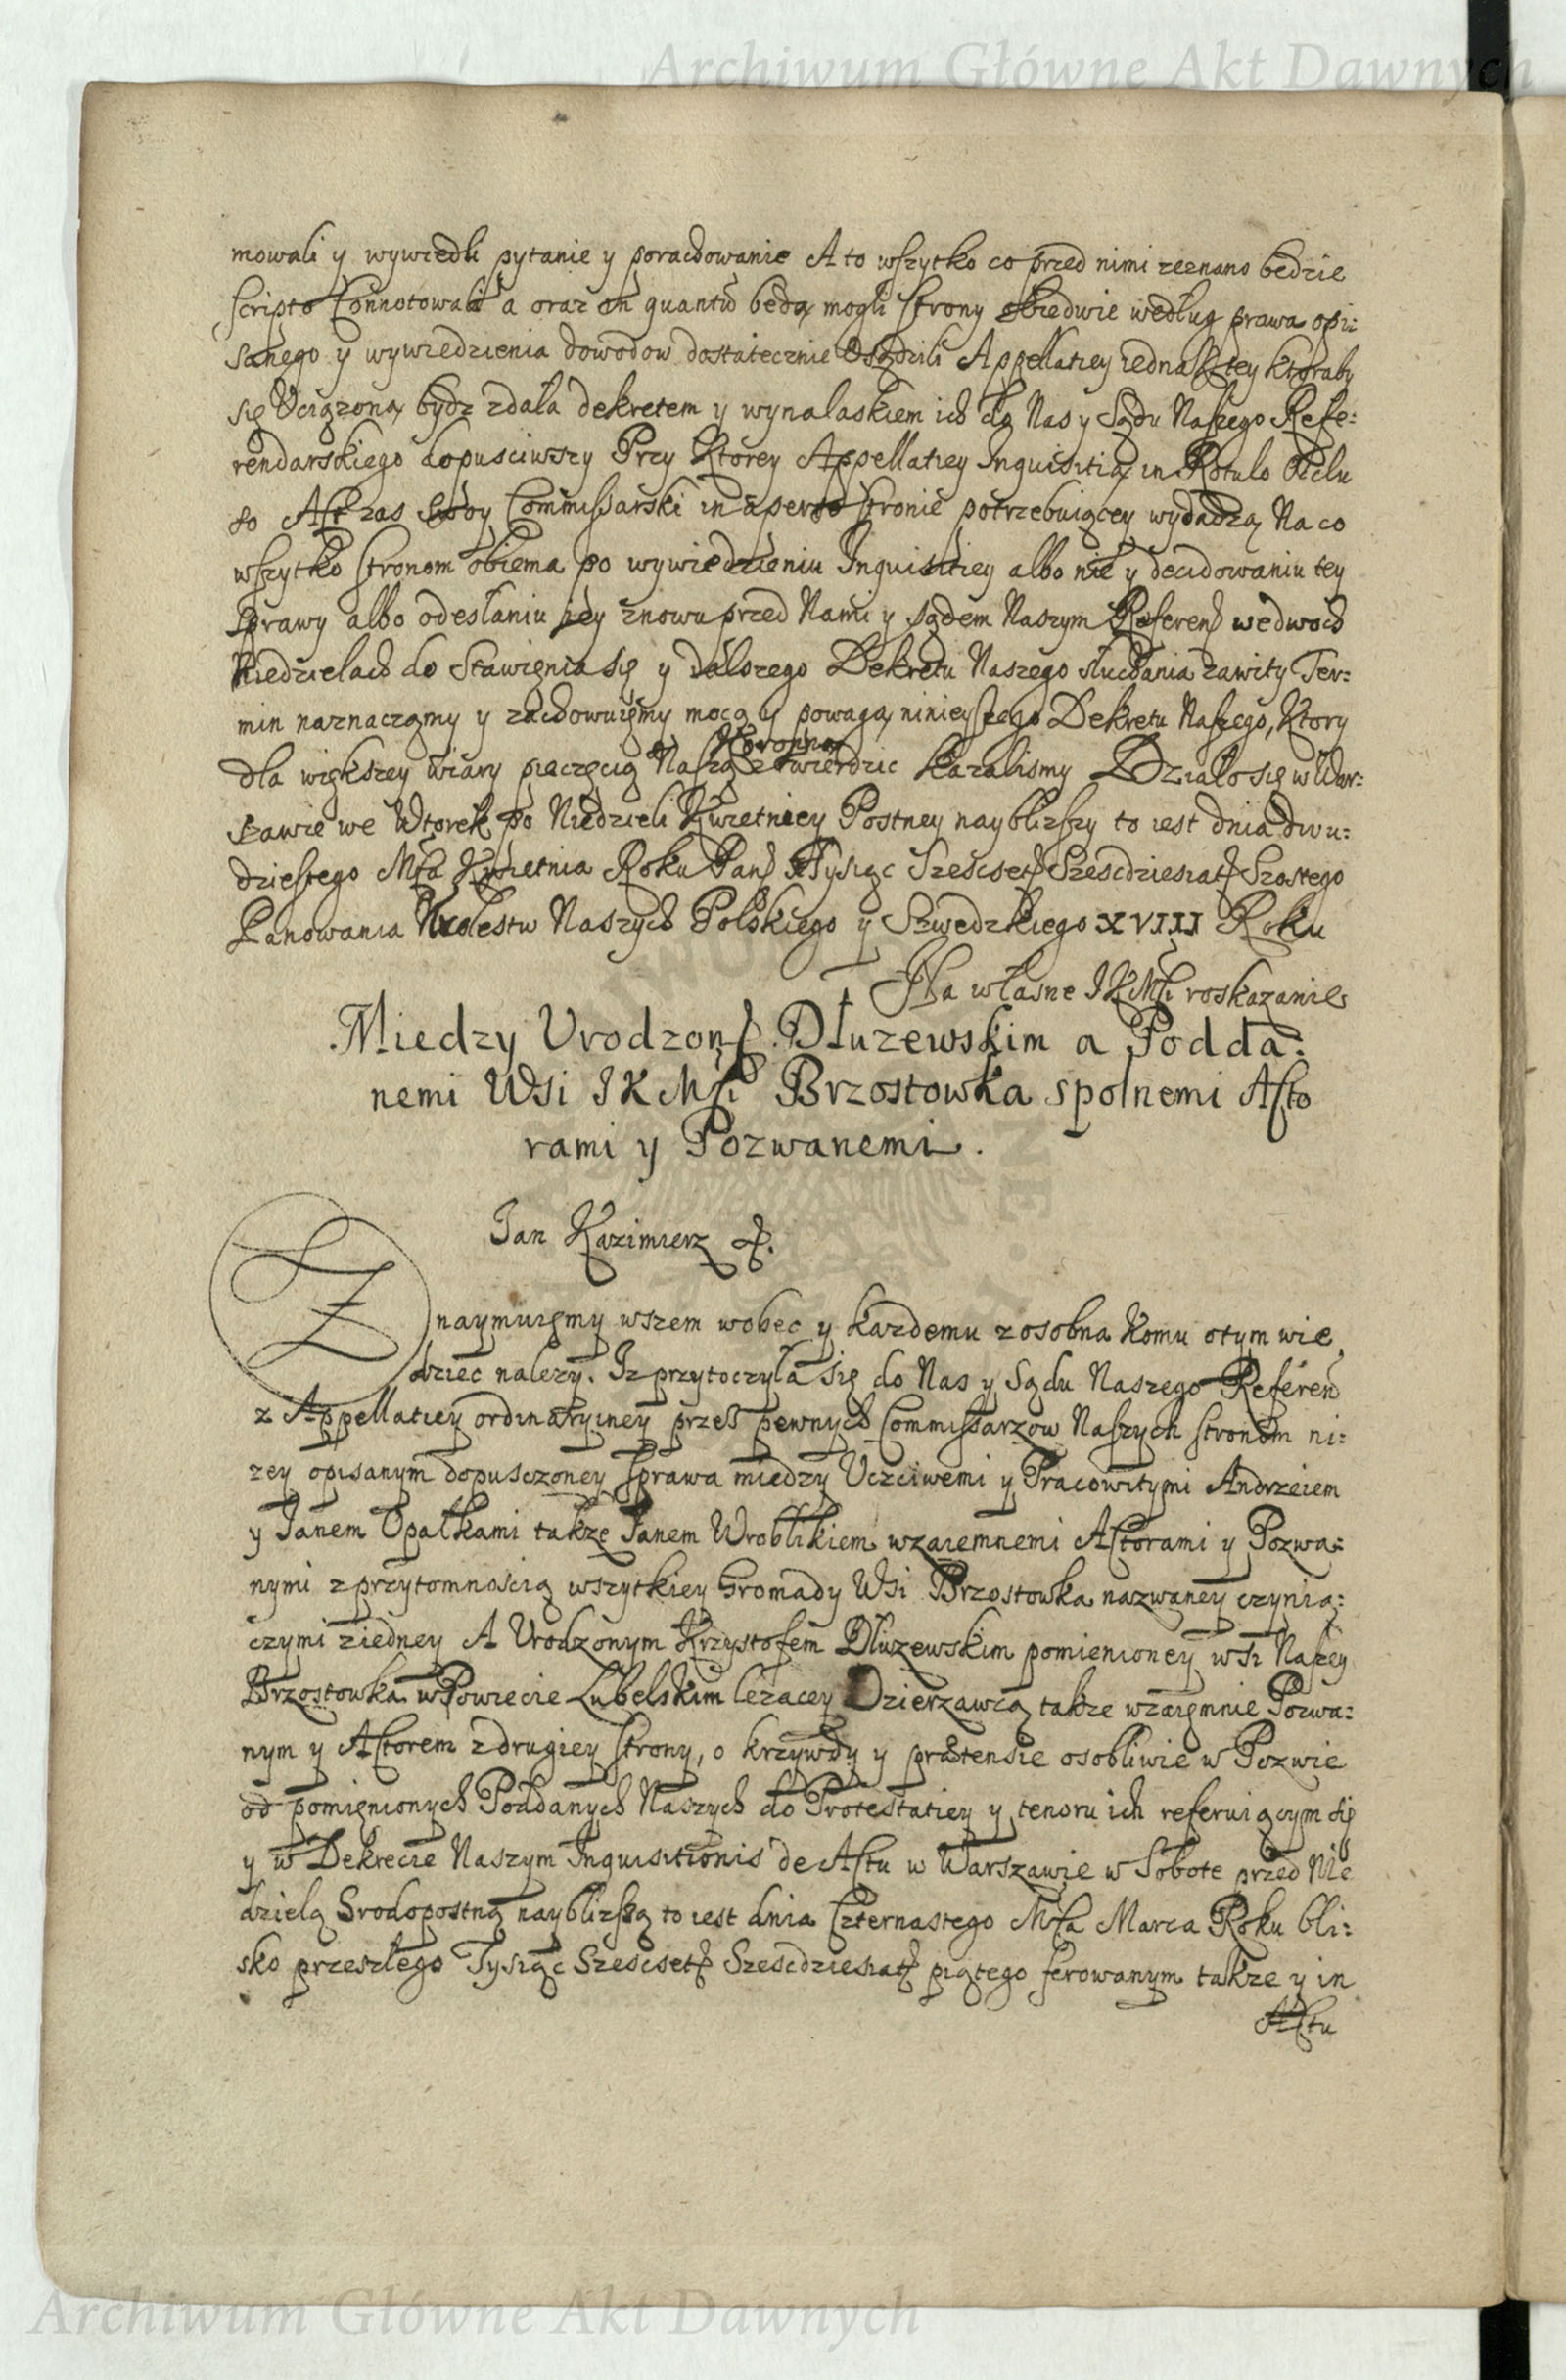 Archiwum Główne Akt Dawnych
mowali y wywiedli pytanie y porachowanie A to wszytko co przed nimi zeznano bedzie
scripto Connotowali a oraz in quantu beda mogli strony obiedwie według prawa opi:
sanego y wywiedzienia dowodow dostatecznie Osądzili Appellatiey iednak tey ktoraby
się Uciązoną bydz zdała dekretem y wynalaskiem ich do Nas y Sądu Naszego Refe:
rendarskiego dopusciwszy Przy Ktorey Appellatiey Inquisitią in Rotulo Clu
so Act zas swoy Commissarski in aperto stronie potrzebuiącey wydadzą Na co
wszytko stronom obiema po wywiedzieniu Inquisitiey albo nie y decidowaniu tey
Sprawy albo odesłaniu iey znowu przed Nami y sądem Naszym Referen wedwoch
Niedzielach do Stawieniа się y dalszego Dekretu Naszego słuchania zawity Ter:
min naznaczamy y zachowuiemy mocą y powagą ninieyszego Dekretu Naszego, Ktory
Koronną
dla większey wiary pieczęcią Naszą ztwierdzic kazalismy Działo się w War:
szawie we Wtorek po Niedzieli Kwietniey Postney nayblizszy to iest dnia dwu:
dziestego Mca Kwietnia Roku Pans Tysiąc Szescset Szescdziesiat Szostego
Panowania Krolestw Naszych Polskiego y Szwedzkiego XVIII Roku
Na własne IKMci roskazanie
Miedzy Vrodzon. Dłuzewskim a Podda:
nemi Wsi IKMci Brzostowka spolnemi Acto
rami y Pozwanemi.
Jan Kazimierz
Znaymuiemy wszem wobec y kazdemu zosobna komu otym wie
dziec nalezy. Iz przytoczyła się do Nas y Sądu Naszego Referen
z Appellatiey ordinaryiney przes pewnych Commissarzow Naszych stronom ni:
zey opisanym dopusczoney sprawa miedzy Uczciwemi y Pracowitymi Andrzeiem
y Janem Opałkami takze Janem Wroblikiem wzaiemnemi Actorami y Pozwa:
nymi z przytomnoscią wszytkiey Gromady Wsi Brzostowka nazwaney czynią:
czymi ziedney A Vrodzonym Krzysztofem Dłuzewskim pomienioney wsi Naszey
Brzostowka w Powiecie Lubelskim lezacey Dzierzawcą takze wzaiemnie Pozwa:
nym y Actorem zdrugiey strony, o krzywdy y prætensie osobliwie w Pozwie
od pomienionych Poddanych Naszych do Protestatiey y tenoru ich referuiącym się
y w Dekrecie Naszym Inquisitionis de Actu w Warszawie w Sobote przed Nie
dzielą Srodopostną nayblizszą to iest dnia Czternastego Mca Marca Roku bli:
sko przeszłego Tysiąc Szescset Szescdziesiat piątego ferowanym takze y in
Actu
Archiwum Główne Akt Dawnych